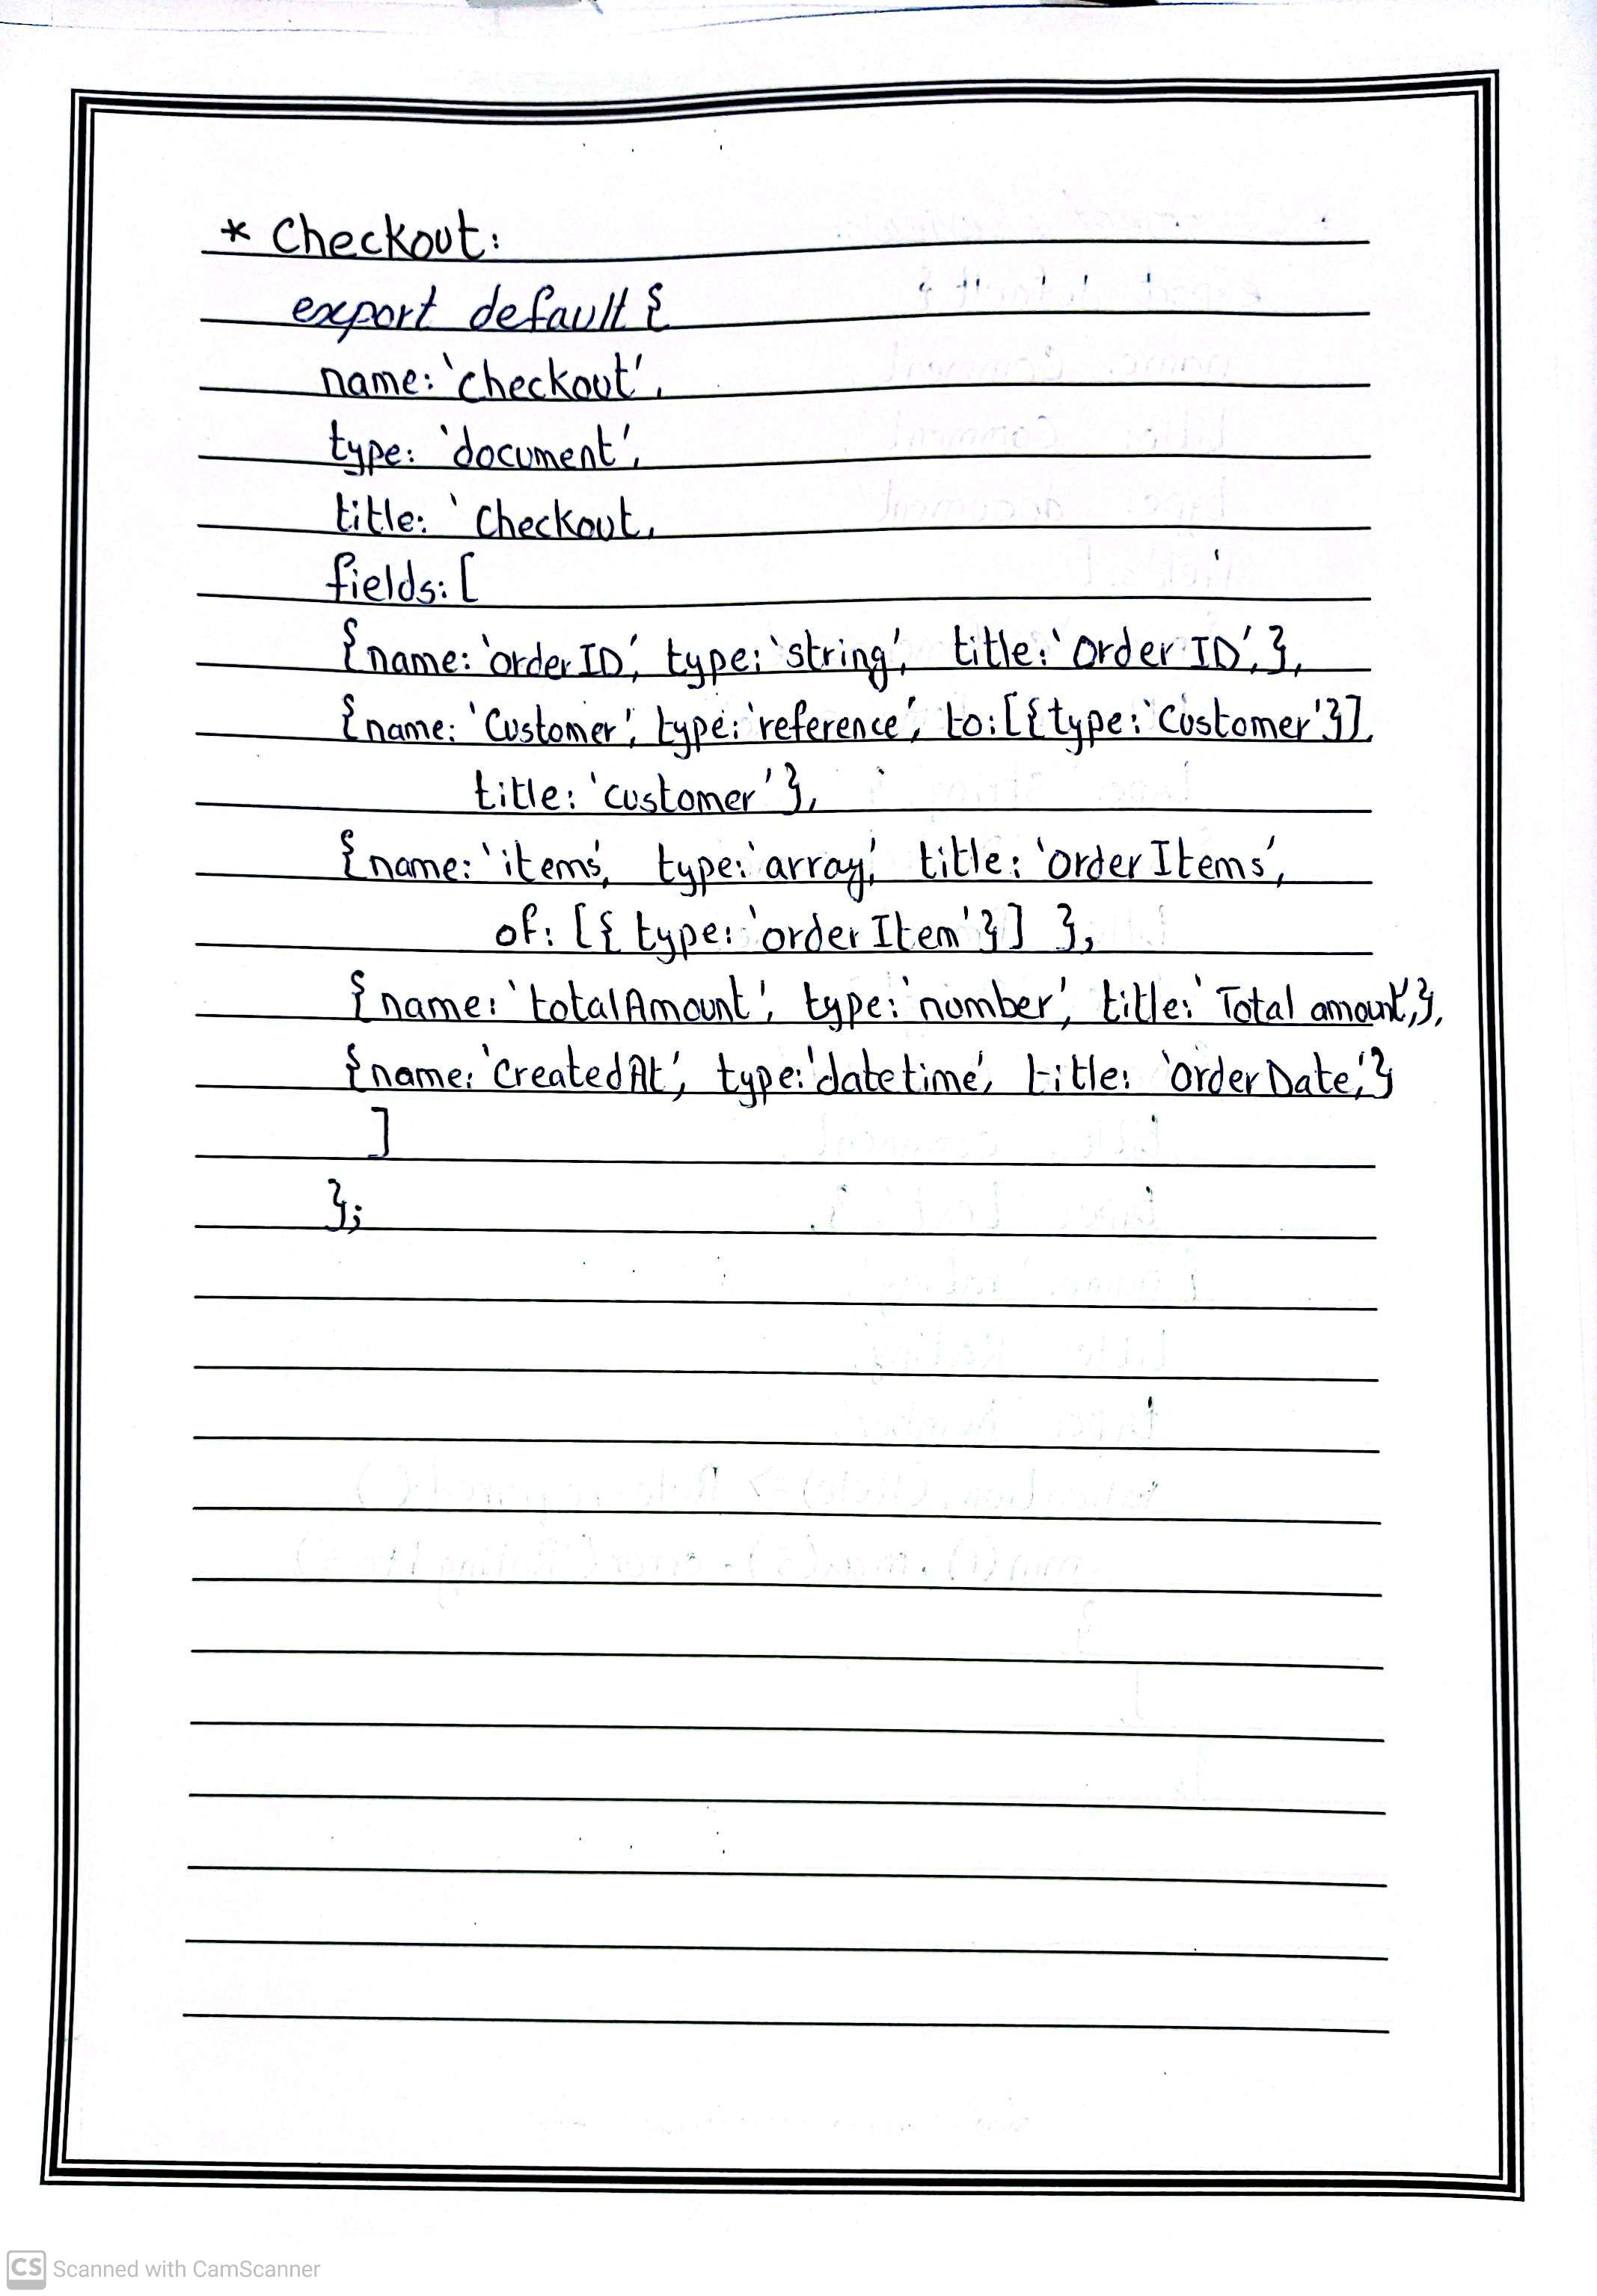 * Checkout:
export default {
name: 'checkout',
type: 'document',
title: 'Checkout,
fields: [
{name: 'orderID', type: 'string', title: 'Order ID', },
{name: 'Customer', type: 'reference', to: [{type: 'Customer'}],
title: 'customer' },
{name: 'items', type: 'array', title: 'order Items',
of: [{ type: 'order Item'}] },
{name: 'totalAmount', type: 'number', title: 'Total amount', },
{name: 'CreatedAt', type: 'datetime', title: 'order Date', }
]
};
CS Scanned with CamScanner